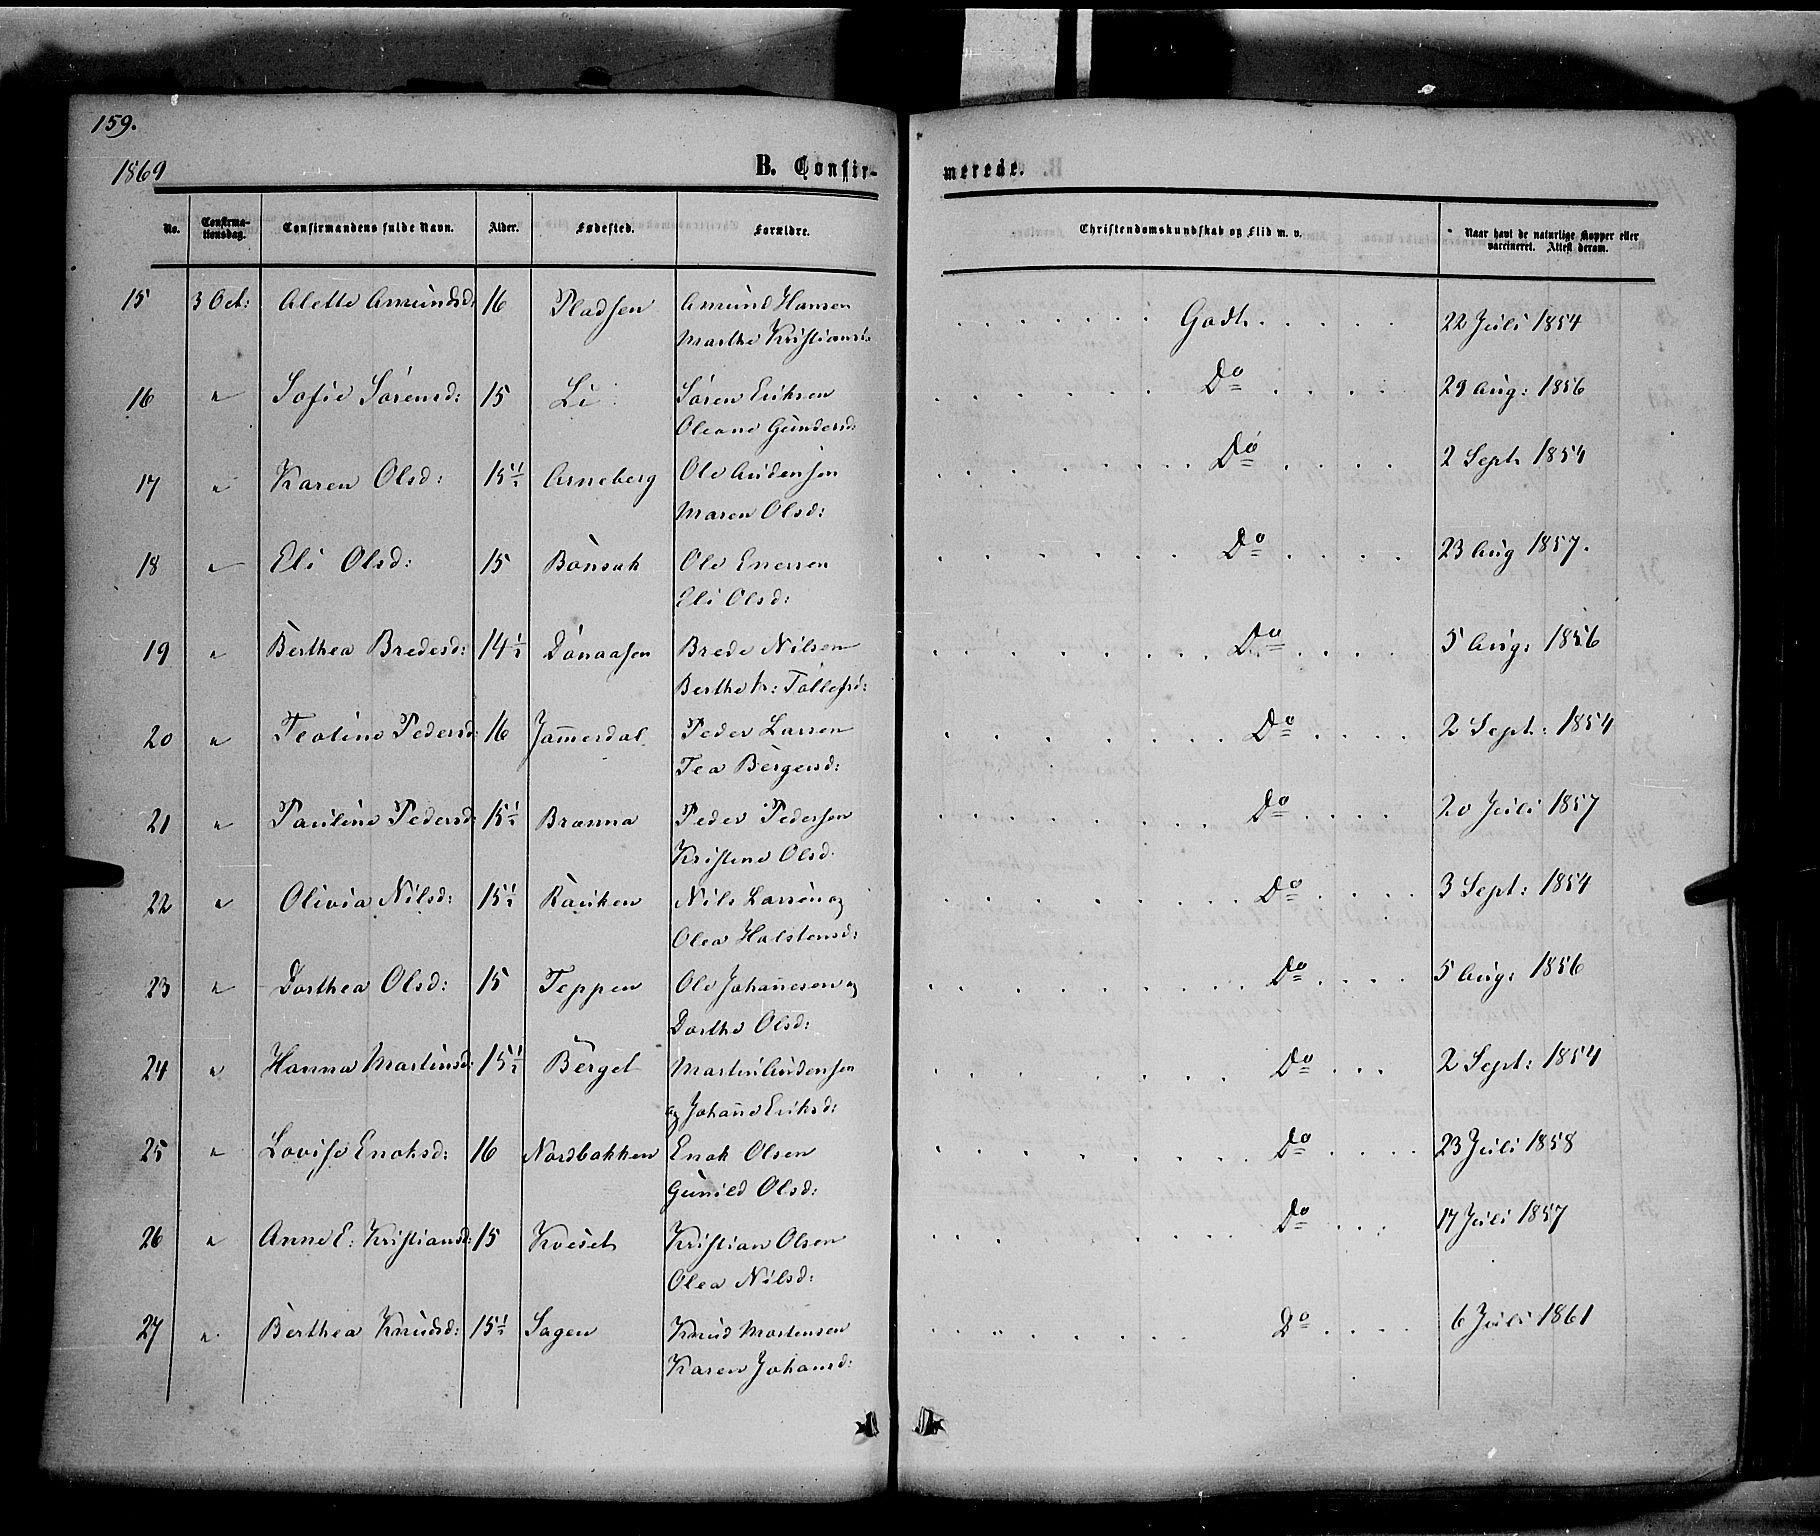 159.
1869
B. Confir-
merede.
No.
Confirma-
tionsdag.
Confirmandens fulde Navn.
Alder.
Fødested.
Forældre.
Christendomskundskab og Flid m. v.
Naar havt de naturlige Kopper eller
vaccineret. Attest derom.
15 3 Oct: Alette Amundsd: 16 Pladsen Amund Hansen Godt. 22 Juli 1854
Marthe Kristiansd:
16 " Sofie Sørensd: 15 Li Søren Eriksen Do 29 Aug: 1856
Oleane Gundersd:
17 " Karen Olsd: 15 1/2 Arneberg Ole Audensen Do 2 Sept. 1854
Maren Olsd:
18 " Eli Olsd: 15 Bönsak Ole Enersen Do 23 Aug 1857.
Eli Olsd:
19 " Berthea Bredesd: 14 1/2 Dönaasen Brede Nilsen Do 5 Aug: 1856
Berthe K: Tollefsd:
20 " Teoline Pedersd: 16 Jam̄erdal Peder Larsen Do 2 Sept: 1854
Tea Bergersd:
21 " Pauline Pedersd: 15 1/2 Branna Peder Pedersen Do 20 Juli 1857
Kristine Olsd.
22 " Olivia Nilsd: 15 1/2 Rauken Nils Larsen og Do 3 Sept: 1854
Olea Halstensd:
23 " Dorthea Olsd: 15 Teppen Ole Johan̄esen og Do 5 Aug: 1856
Dorthe Olsd:
24 " Hanna Martinsd: 15 1/2 Berget Martin Audensen Do 2 Sept: 1854
og Johan̄e Eriksd:
25 " Lovise Enoksd: 16 Nordbakken Enok Olsen Do 23 Juli 1858
Gunild Olsd:
26 " Anne E: Kristiansd: 15 Kveset Kristian Olsen Do 17 Juli 1857
Olea Nilsd:
27 " Berthea Knudsd: 15 1/2 Sagen Knud Mortensen Do 6 Juli 1861
Karen Johansd: